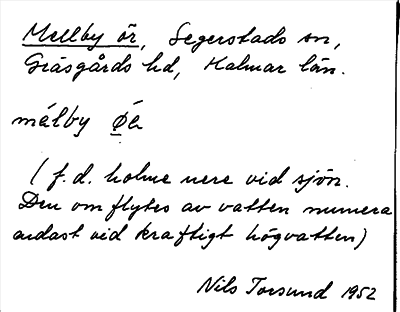 Mellby ör, Segerstads sn,
Gräsgårds hd, Kalmar län.
mélby
(f.d. holme nere vid sjön.
Den omflytes av vatten numera
endast vid kraftigt högvatten)
Nils Torsund 1952